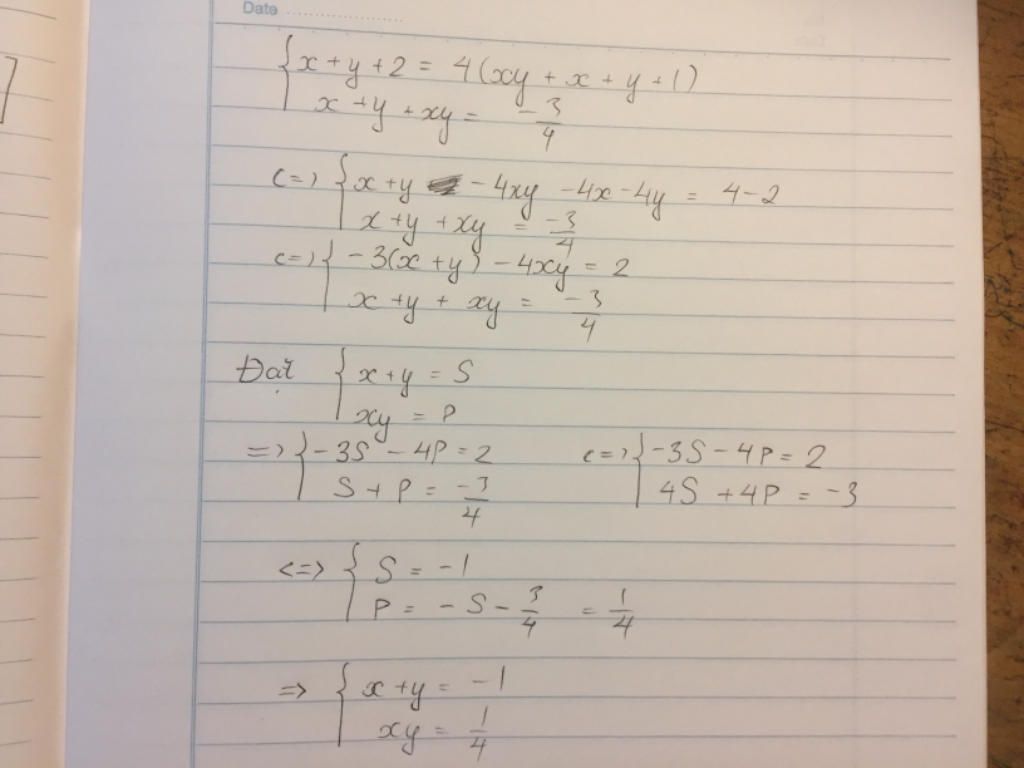 Date
{ x + y + 2 = 4(xy + x + y + 1)
x + y + xy = -3/4
<=> { x + y - 4xy - 4x - 4y = 4 - 2
x + y + xy = -3/4
<=> { -3(x + y) - 4xy = 2
x + y + xy = -3/4
Đặt { x + y = S
xy = P
=> { -3S - 4P = 2 <=> { -3S - 4P = 2
S + P = -3/4 4S + 4P = -3
<=> { S = -1
P = -S - 3/4 = 1/4
=> { x + y = -1
xy = 1/4